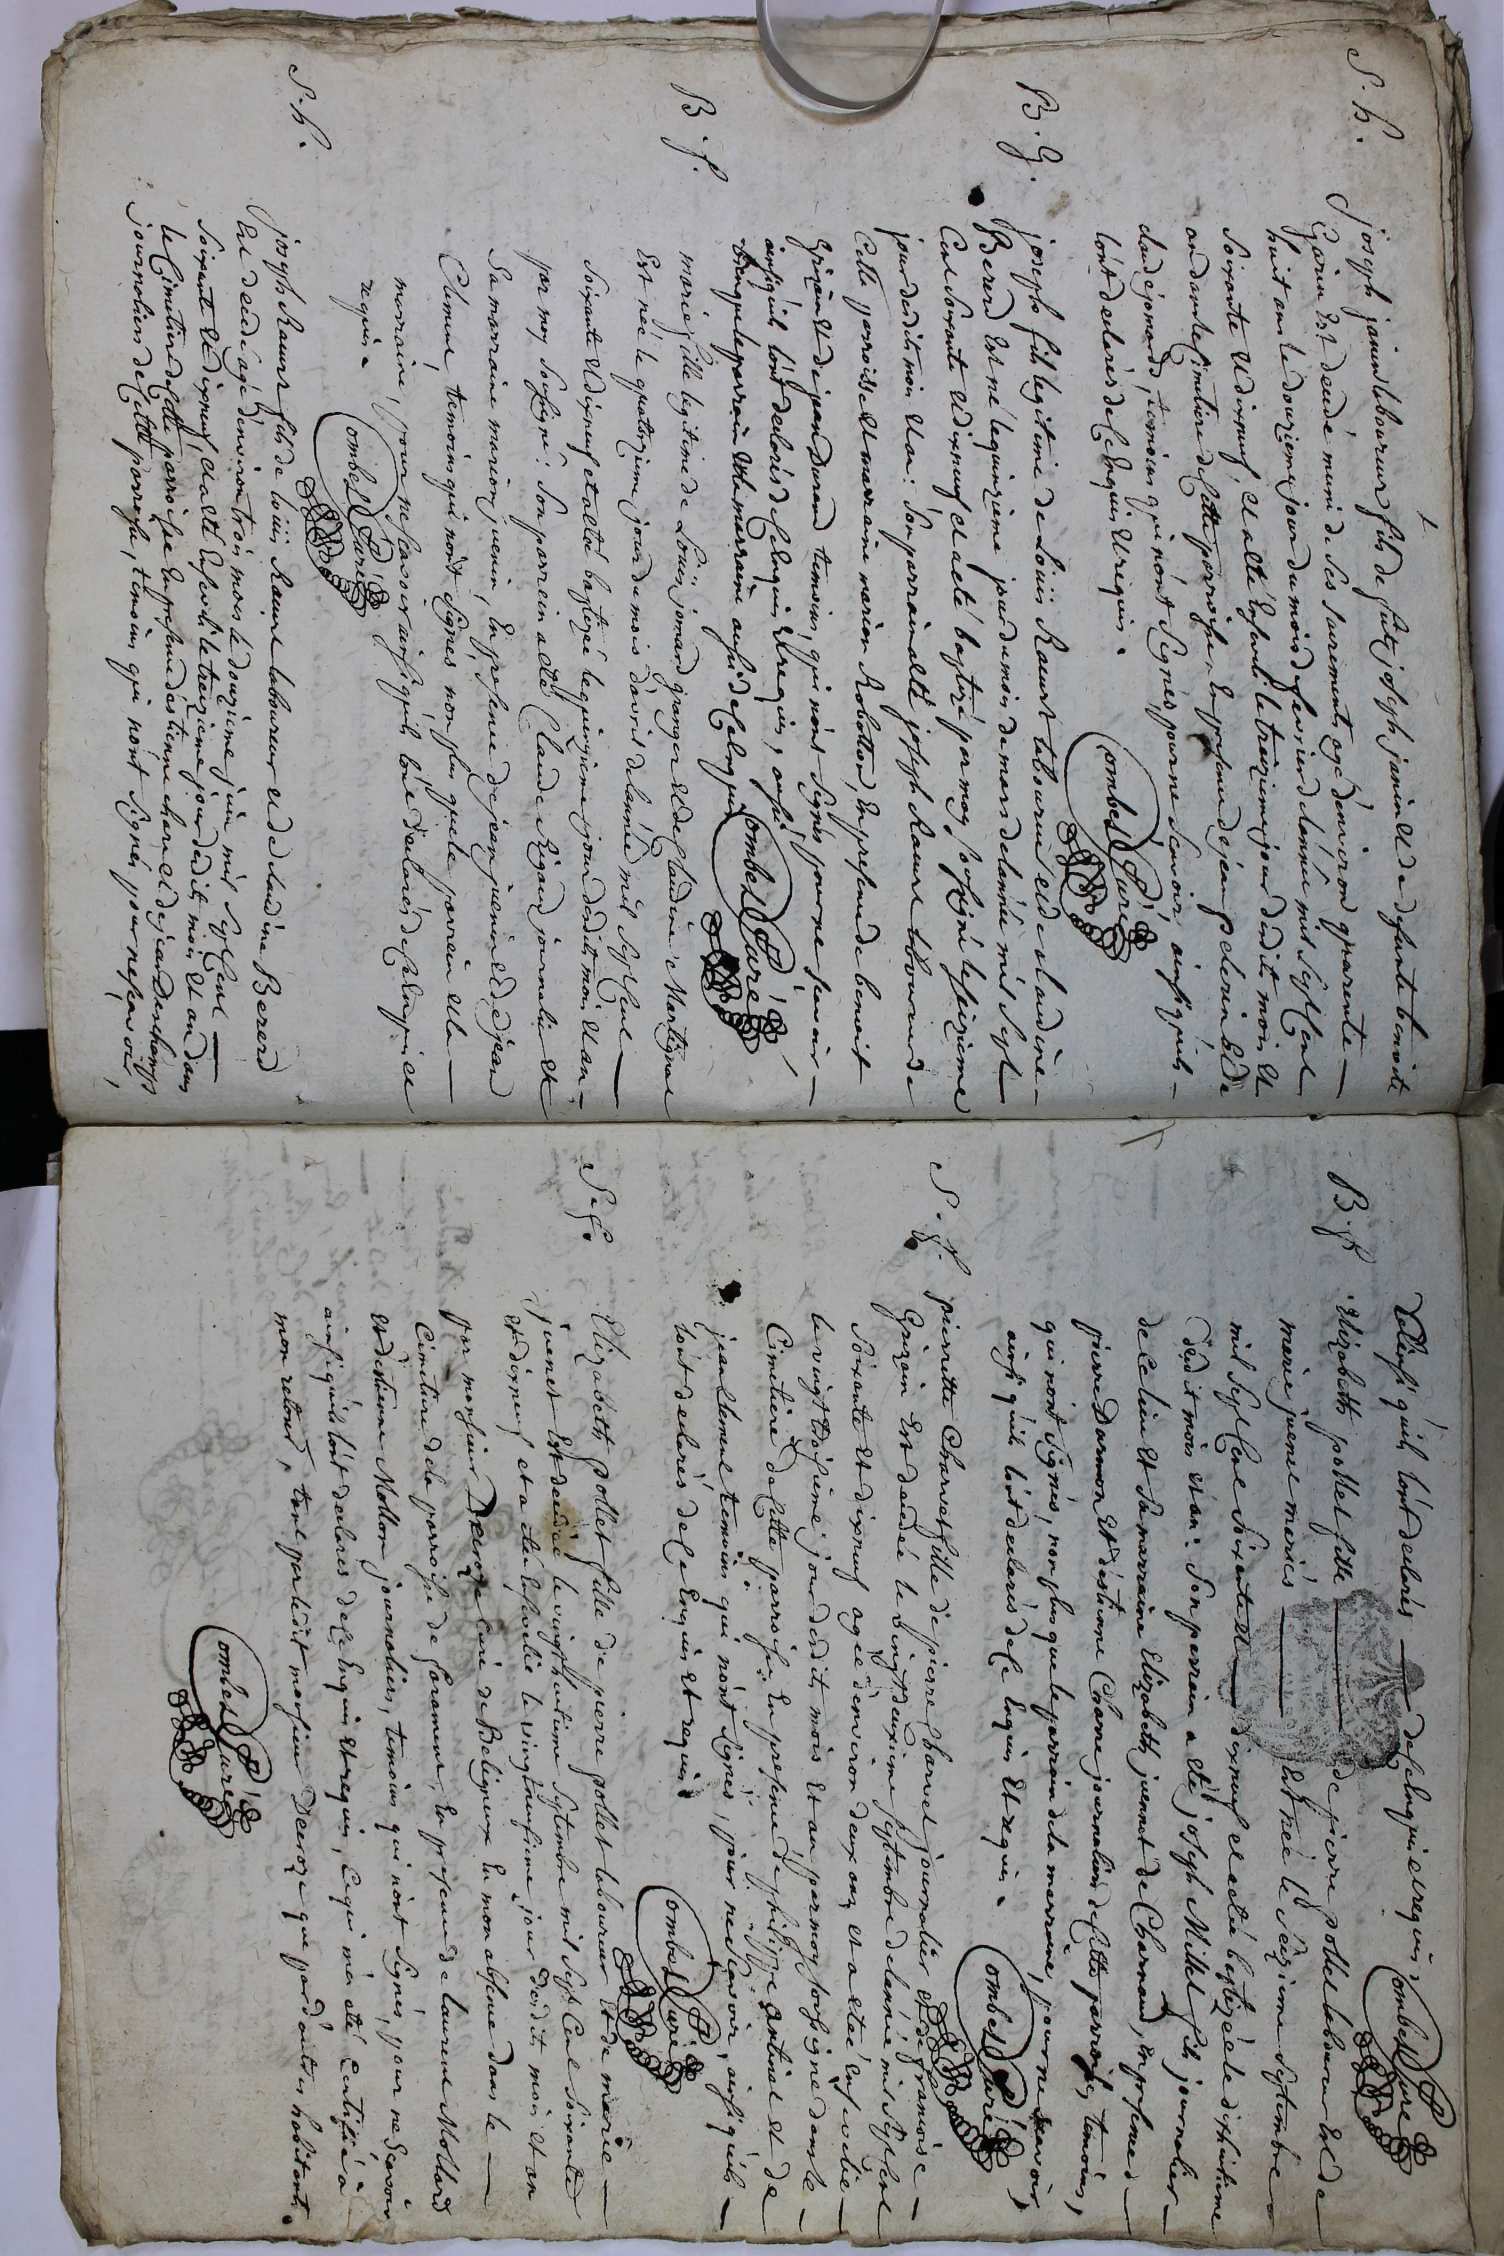 S. h.
joseph janin laboureur fils de feu joseph janin et de defunte benoite
Garin est decedé muni de ses sacrements agé d'environ quarente
huit ans le douzieme jour du mois de fevrier de l'année mil sept cent
soixante et dixneuf, et a été enseveli le treizieme jour dudit mois et
an dans le cimitiere de cette parroisse, en presence de jean et de
claude jomard, temoins qui n'ont signés pour ne sçavoir, ainsi qu'ils
l'ont declarés de ce enquis et requis.
Combet Curé
B. G.
joseph fils legitime de Loüis Ravet laboureur et de claudine
Bererd est né le quinzieme jour du mois de mars de l'année mil sept
cent soixante et dixneuf, et a eté baptizé par moy soussigné le seizieme
jour dudit mois et an: son parrain a été joseph Ravet laboureur de
cette parroisse et marraine marion Robetton, en presence de benoit
Grizain et de jean Durand temoins, qui n'ont signés pour ne sçavoir
ainsi qu'ils l'ont declarés de ce enquis et requis, aussi
bien que le parrain et la marraine aussi de ce enquis
Combet Curé
B. f.
marie fille legitime de Loüis jomard granger et de Claudine Martignat
est née le quatorzieme jour du mois d'avril de l'année mil sept cent
soixante et dixneuf et a été baptizée le quinzieme jour dudit mois et an
par moy soussigné: son parrein a été Claude Rigaud journalier et
sa marraine marion juenin, en presence de jean juenin et de jean
Clement, temoins qui n'ont signés non plus que le parrein et la
marraine, pour ne sçavoir ainsi qu'ils l'ont declarés de ce enquis et
requis.
Combet Curé
S. h.
joseph Ravet fils de Loüis Ravet laboureur et de claudine Bererd
est decedé agé d'environ trois mois le douzieme juin mil sept cent
soixante et dixneuf, et a été enseveli le treizieme jour dudit mois et an dans
le cimitiere de cette parroisse en presence d'estienne et de jean
journaliers de cette parroisse, temoins qui n'ont signés pour ne sçavoir,
Et ainsi qu'ils l'ont declarés de ce enquis et requis,
Combet Curé
B. f.
Elizabeth pollet fille de pierre pollet laboureur et de
marie juenet mariés est née le seizieme septembre
mil sept cent soixante et dixneuf et a été baptizée le dixhuitieme
dudit mois et an: son parrein a été joseph Millet fils journalier
de ce lieu et sa marraine Elizabeth juennet de Charnoud, en presence de
pierre Darmon et d'estienne Charve journaliers de cette parroisse, temoins,
qui n'ont signés, non plus que le parrain et la marraine, pour ne sçavoir,
ainsi qu'ils l'ont declarés de ce enquis et requis.
Combet Curé
S. f.
pierrette Charvet fille de pierre Charvet journalier et de francoise
Grizain est decedée le vingt deuxieme septembre de l'année mil sept cent
soixante et dixneuf agée d'environ deux ans, et a eté ensevelie
le vingt troisieme jour dudit mois et an par moy soussigné dans le
cimetiere de cette parroisse en presence de philippe et de
jean Clement temoins qui n'ont signés, pour ne sçavoir, ainsi qu'ils
l'ont declarés de ce enquis et requis.
Combet Curé
S. f.
Elizabeth pollet fille de pierre pollet laboureur et de marie
juenet est decedée le vingt huitieme septembre mil sept cent soixante
et dixneuf et a été ensevelie le vingtneufieme jour dudit mois et an
par monsieur Decroze Curé de Beligneux en mon absence dans le
cimetiere de la parroisse de faramans, en presence de laurent Mollard
et d'estienne Mollon journaliers, temoins qui n'ont signés, pour ne sçavoir
ainsi qu'ils l'ont declarés de ce enquis et requis, ce qui m'a été certifié à
mon retour, tant par ledit monsieur Decroze que par d'autres habitants.
Combet Curé